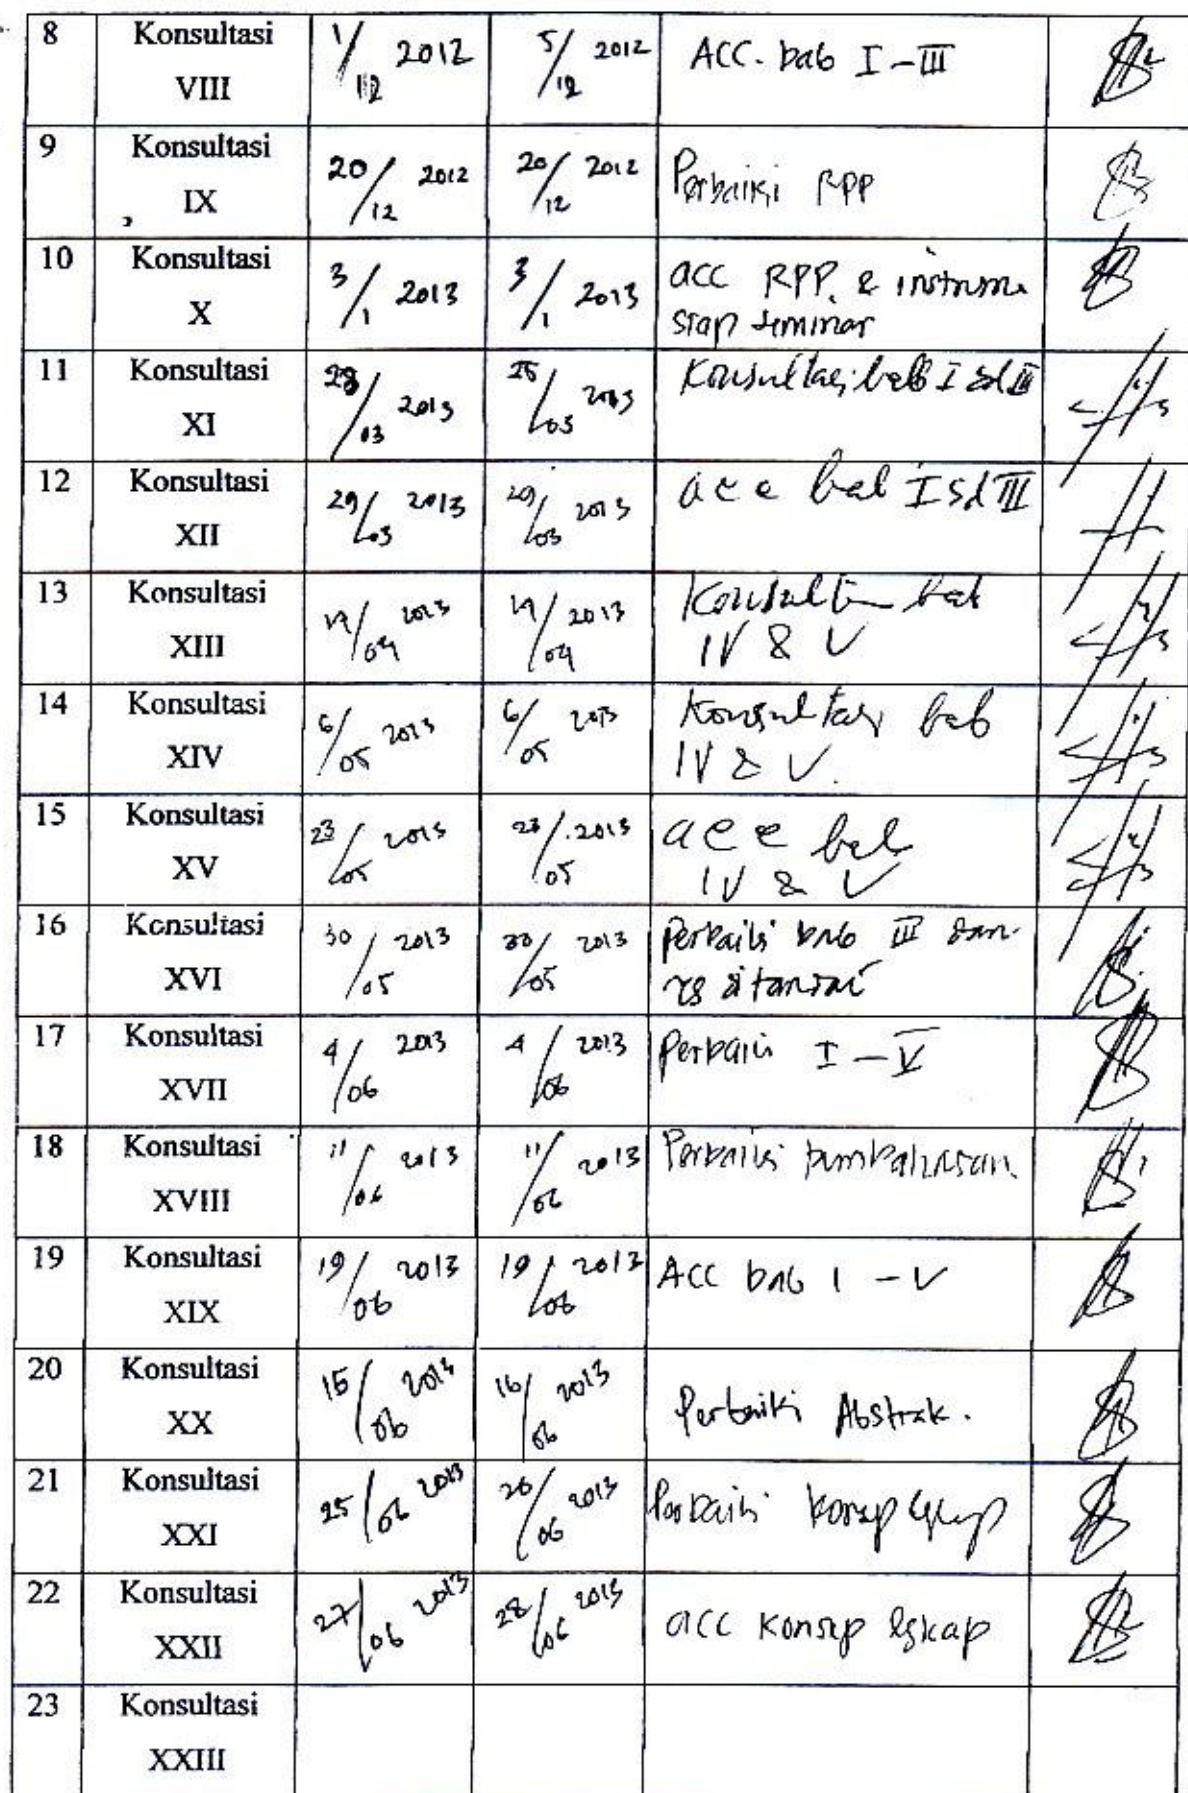 8 Konsultasi VIII 1/12 2012 5/12 2012 ACC. bab I - III
9 Konsultasi IX 20/12 2012 20/12 2012 Perbaiki RPP
10 Konsultasi X 3/1 2013 3/1 2013 acc RPP & instrume
siap seminar
11 Konsultasi XI 28/03 2013 /03 2013 Konsultasi bab I sd III
12 Konsultasi XII 29/03 2013 29/03 2013 acc bab I sd III
13 Konsultasi XIII /04 2013 /04 2013 bab
IV & V
14 Konsultasi XIV 6/05 2013 6/05 2013 Konsultasi bab
IV & V.
15 Konsultasi XV 23/05 2013 23/05 2013 acc bab
IV & V
16 Konsultasi XVI 30/05 2013 30/05 2013 Perbaiki bab III dan
yg ditandai
17 Konsultasi XVII 4/06 2013 4/06 2013 Perbaiki I - V
18 Konsultasi XVIII 11/06 2013 11/06 2013 Perbaiki pembahasan
19 Konsultasi XIX 19/06 2013 19/06 2013 ACC bab I - V
20 Konsultasi XX 15/06 2013 16/06 2013 Perbaiki Abstrak.
21 Konsultasi XXI 25/06 2013 26/06 2013 Perbaiki konsep
22 Konsultasi XXII 27/06 2013 28/06 2013 acc konsep lgkap
23 Konsultasi XXIII